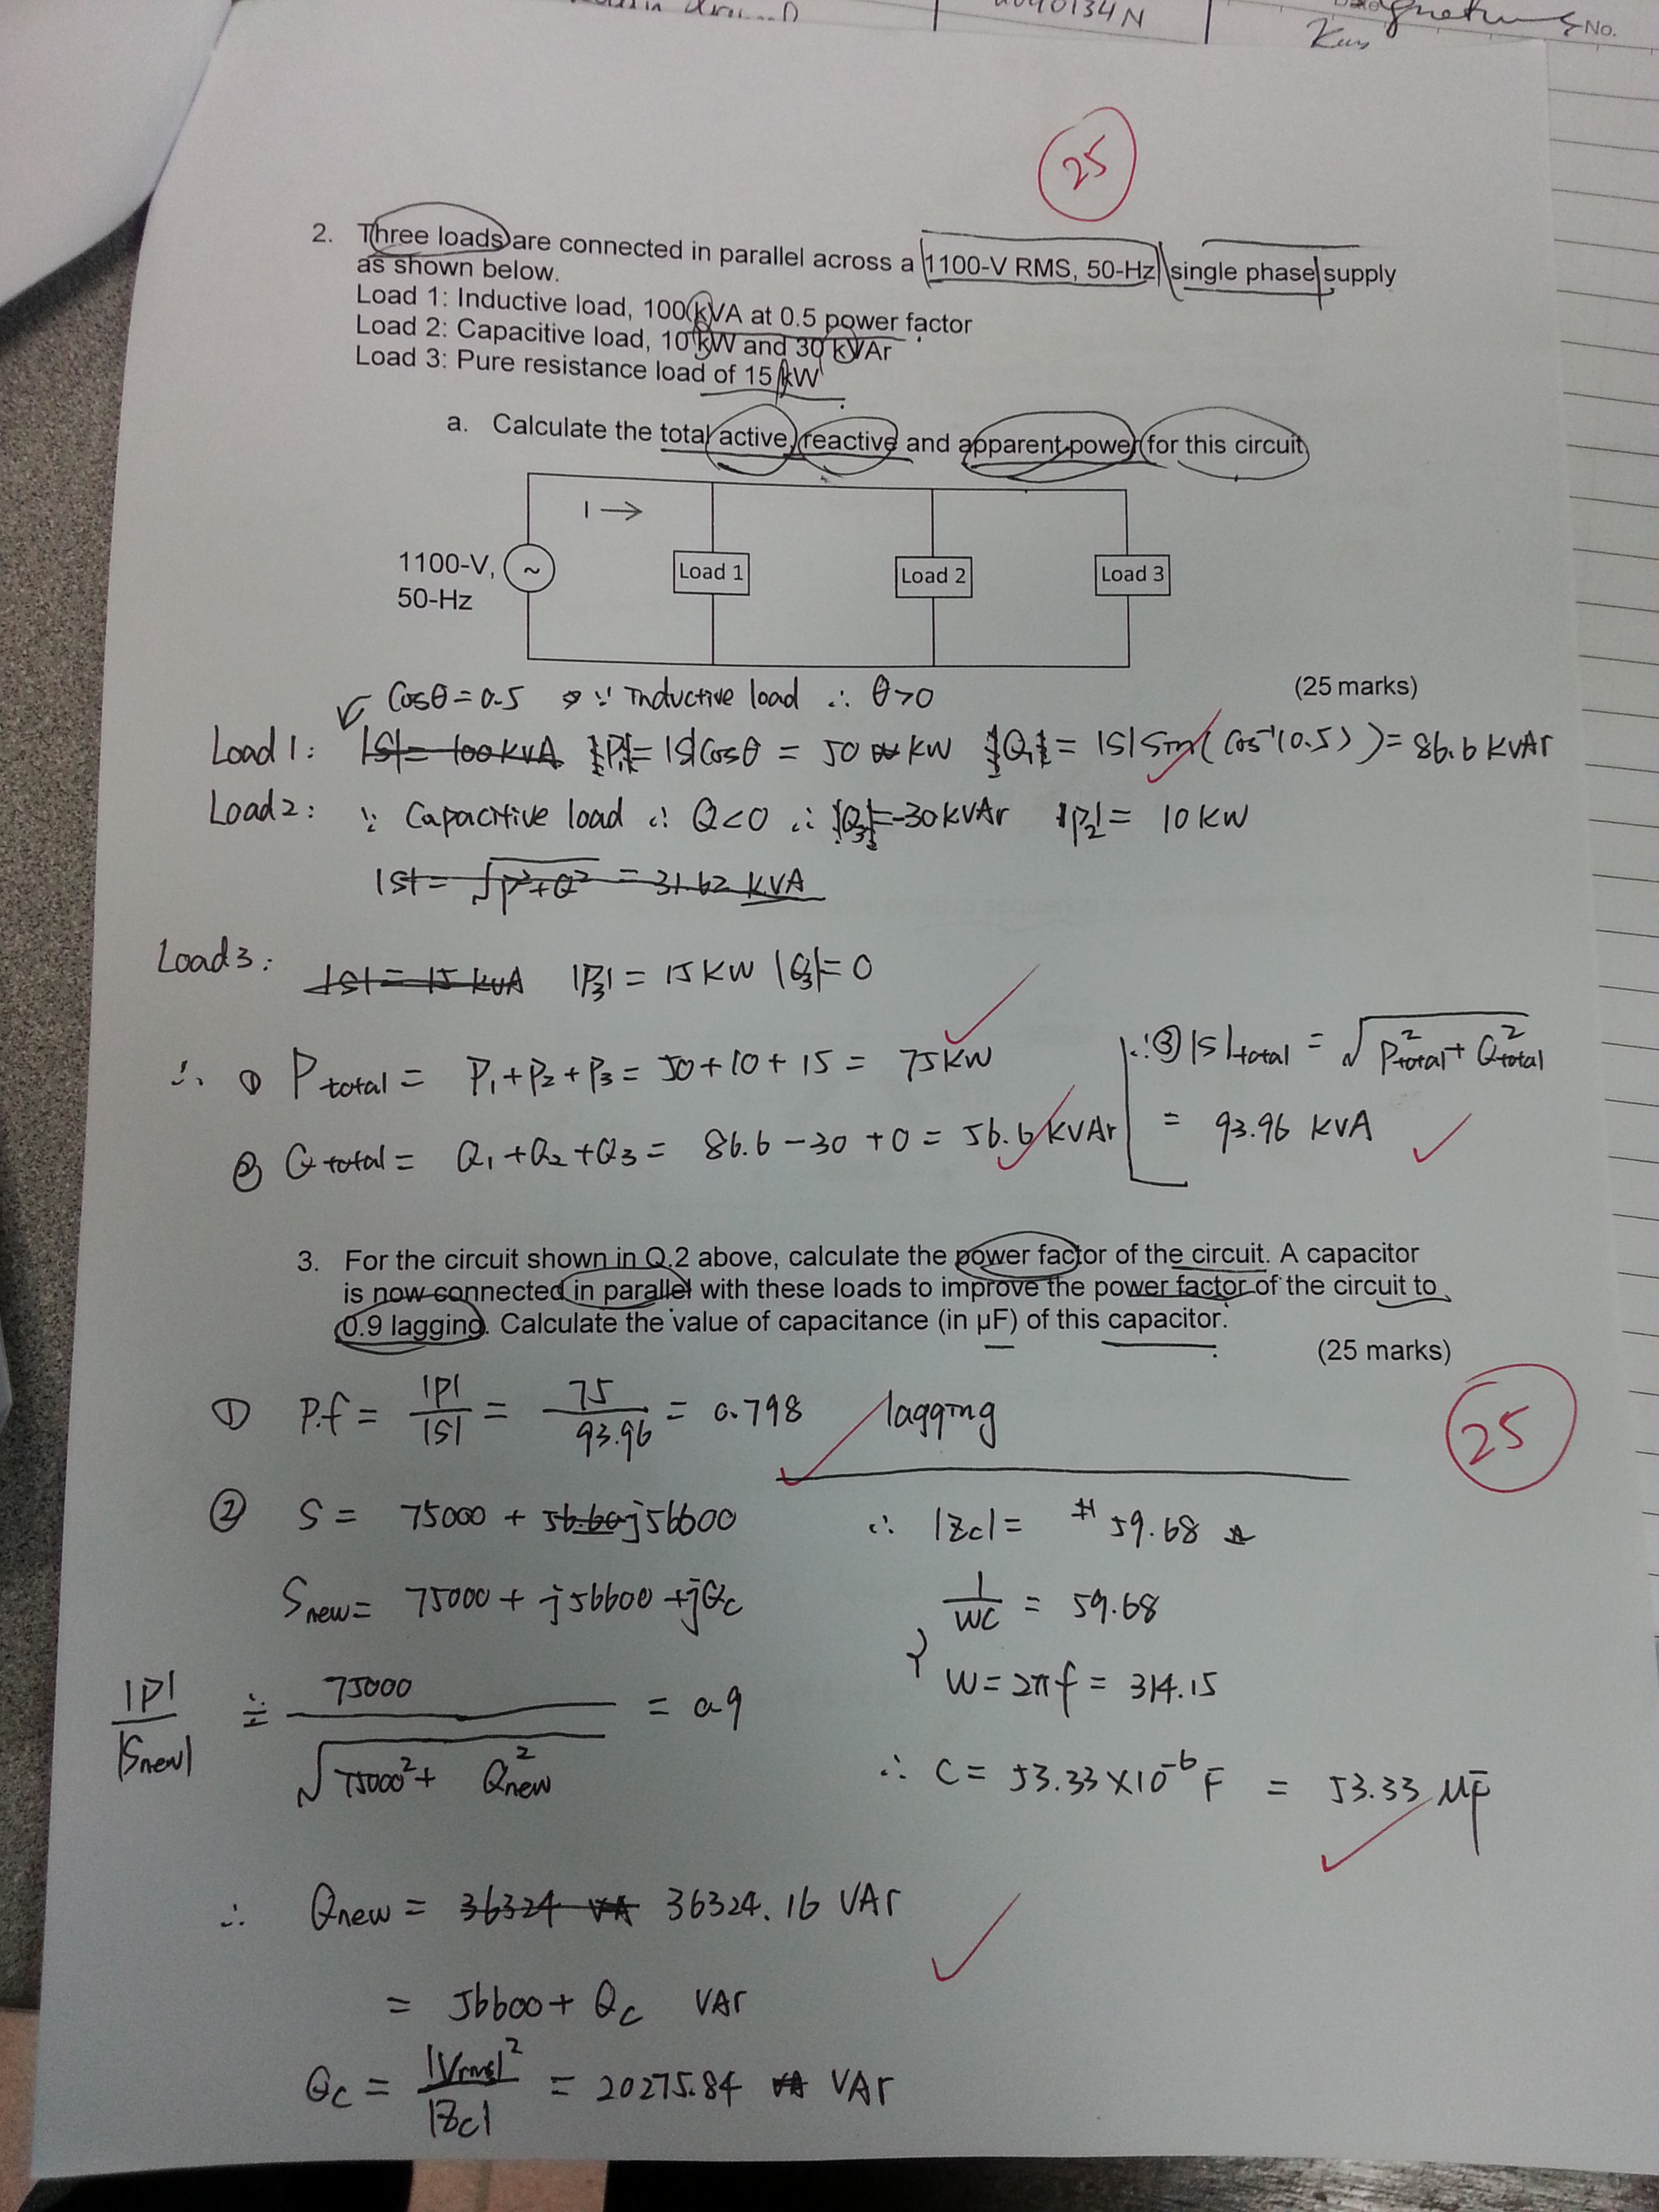 No.
25
2. Three loads are connected in parallel across a 1100-V RMS, 50-Hz single phase supply
as shown below.
Load 1: Inductive load, 100 kVA at 0.5 power factor
Load 2: Capacitive load, 10 kW and 30 kVAr
Load 3: Pure resistance load of 15 kW
a. Calculate the total active, reactive and apparent power for this circuit
I →
1100-V,
50-Hz
~
Load 1
Load 2
Load 3
(25 marks)
Cosθ = 0.5 ⇒ ∵ Inductive load ∴ θ>0
Load 1: |S| = 100 KVA P₁ = |S|Cosθ = 50 KW Q₁ = |S| Sin(Cos⁻¹(0.5)) = 86.6 KVAr
Load 2: ∵ Capacitive load ∴ Q<0 ∴ Q₂ = -30 KVAr |P₂| = 10 KW
|S| = √P²+Q² = 31.62 KVA
Load 3: |S| = 15 KVA |P₃| = 15 KW |Q₃| = 0
∴ ① P total = P₁ + P₂ + P₃ = 50 + 10 + 15 = 75 KW
② Q total = Q₁ + Q₂ + Q₃ = 86.6 - 30 + 0 = 56.6 KVAr
∴ ③ |S| total = √P²total + Q²total
= 93.96 KVA
3. For the circuit shown in Q.2 above, calculate the power factor of the circuit. A capacitor
is now connected in parallel with these loads to improve the power factor of the circuit to
0.9 lagging. Calculate the value of capacitance (in µF) of this capacitor.
(25 marks)
25
① P.f = |P|/|S| = 75/93.96 = 0.798 lagging
② S = 75000 + 56.60 j56600
Snew = 75000 + j56600 + jQc
|P|/|Snew| = 75000/√75000² + Q²new = 0.9
∴ Qnew = 36324 VA 36324.16 VAr
= 56600 + Qc VAr
Qc = |Vrms|²/|Zc| = 20275.84 VA VAr
∴ |Zc| = 59.68
1/WC = 59.68
W = 2πf = 314.15
∴ C = 53.33 × 10⁻⁶ F = 53.33 µF